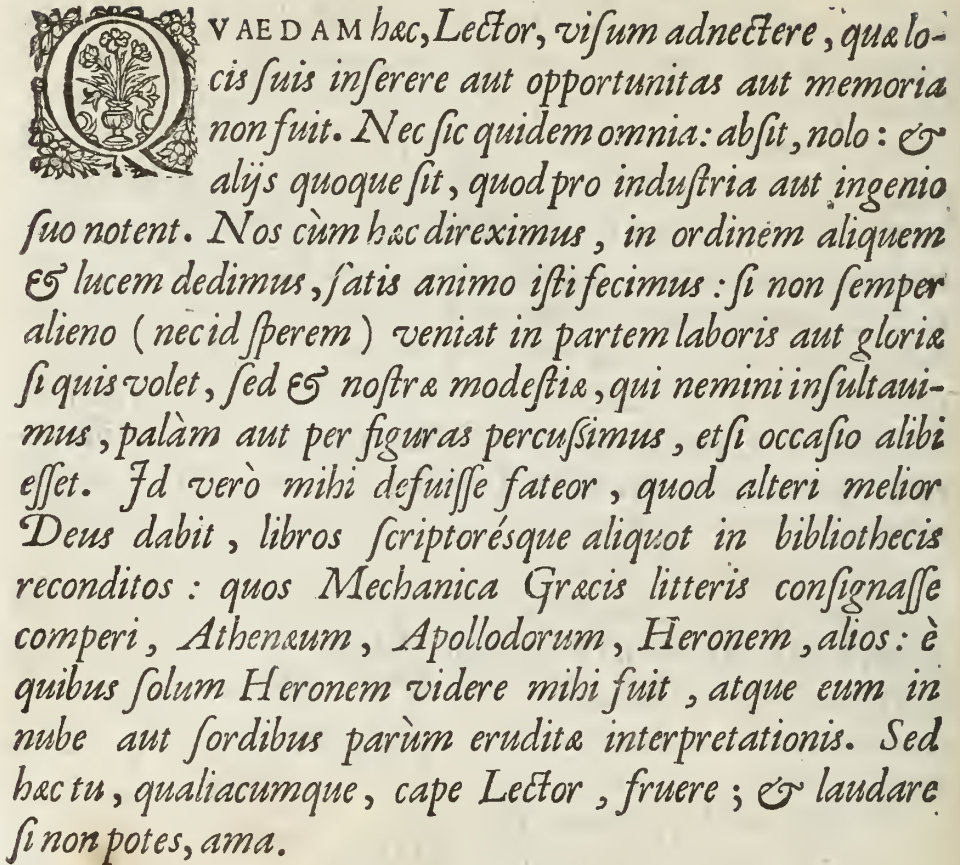 QVAEDAM hæc, Lector, viſum adnectere, quæ lo-
cis ſuis inſerere aut opportunitas aut memoria
non fuit. Nec ſic quidem omnia: abſit, nolo: &
alijs quoque ſit, quod pro induſtria aut ingenio
ſuo notent. Nos cùm hæc direximus, in ordinem aliquem
& lucem dedimus, ſatis animo iſti fecimus: ſi non ſemper
alieno (nec id ſperem) veniat in partem laboris aut gloriæ
ſi quis volet, ſed & noſtræ modeſtiæ, qui nemini inſultaui-
mus, palàm aut per figuras percuſsimus, etſi occaſio alibi
eſſet. Id verò mihi defuiſſe fateor, quod alteri melior
Deus dabit, libros ſcriptorésque aliquot in bibliothecis
reconditos: quos Mechanica Græcis litteris conſignaſſe
comperi, Athenæum, Apollodorum, Heronem, alios: è
quibus ſolum Heronem videre mihi fuit, atque eum in
nube aut ſordibus parùm eruditæ interpretationis. Sed
hæc tu, qualiacumque, cape Lector, fruere; & laudare
ſi non potes, ama.